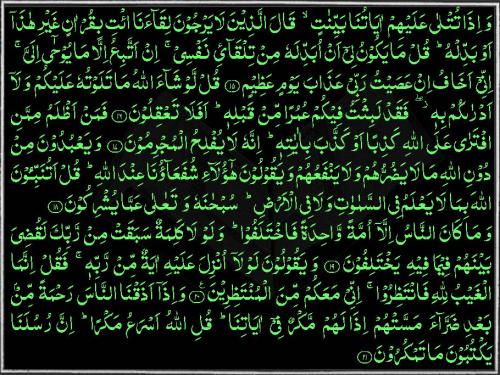 وَ اِذَا تُتْلٰى عَلَيْهِمْ اٰيَاتُنَا بَيِّنٰتٍ ۙ قَالَ الَّذِيْنَ لَا يَرْجُوْنَ لِقَآءَنَا ائْتِ بِقُرْاٰنٍ غَيْرِ هٰذَاۤ
اَوْ بَدِّلْهُ ؕ قُلْ مَا يَكُوْنُ لِيْۤ اَنْ اُبَدِّلَهٗ مِنْ تِلْقَآئِ نَفْسِيْ ۚ اِنْ اَتَّبِعُ اِلَّا مَا يُوْحٰۤى اِلَيَّ ۚ
اِنِّيْۤ اَخَافُ اِنْ عَصَيْتُ رَبِّيْ عَذَابَ يَوْمٍ عَظِيْمٍ ﴿۱۵﴾ قُلْ لَّوْ شَآءَ اللّٰهُ مَا تَلَوْتُهٗ عَلَيْكُمْ وَ لَاۤ
اَدْرٰىكُمْ بِهٖ ۖ فَقَدْ لَبِثْتُ فِيْكُمْ عُمُرًا مِّنْ قَبْلِهٖ ؕ اَفَلَا تَعْقِلُوْنَ ﴿۱۶﴾ فَمَنْ اَظْلَمُ مِمَّنِ
افْتَرٰى عَلَى اللّٰهِ كَذِبًا اَوْ كَذَّبَ بِاٰيٰتِهٖ ؕ اِنَّهٗ لَا يُفْلِحُ الْمُجْرِمُوْنَ ﴿۱۷﴾ وَ يَعْبُدُوْنَ مِنْ
دُوْنِ اللّٰهِ مَا لَا يَضُرُّهُمْ وَ لَا يَنْفَعُهُمْ وَ يَقُوْلُوْنَ هٰۤؤُلَآءِ شُفَعَآؤُنَا عِنْدَ اللّٰهِ ؕ قُلْ اَتُنَبِّـُٔوْنَ
اللّٰهَ بِمَا لَا يَعْلَمُ فِي السَّمٰوٰتِ وَ لَا فِي الْاَرْضِ ؕ سُبْحٰنَهٗ وَ تَعٰلٰى عَمَّا يُشْرِكُوْنَ ﴿۱۸﴾
وَ مَا كَانَ النَّاسُ اِلَّاۤ اُمَّةً وَّاحِدَةً فَاخْتَلَفُوْا ؕ وَ لَوْ لَا كَلِمَةٌ سَبَقَتْ مِنْ رَّبِّكَ لَقُضِيَ
بَيْنَهُمْ فِيْمَا فِيْهِ يَخْتَلِفُوْنَ ﴿۱۹﴾ وَ يَقُوْلُوْنَ لَوْ لَاۤ اُنْزِلَ عَلَيْهِ اٰيَةٌ مِّنْ رَّبِّهٖ ۚ فَقُلْ اِنَّمَا
الْغَيْبُ لِلّٰهِ فَانْتَظِرُوْا ۚ اِنِّيْ مَعَكُمْ مِّنَ الْمُنْتَظِرِيْنَ ﴿۲۰﴾ وَ اِذَاۤ اَذَقْنَا النَّاسَ رَحْمَةً مِّنْۢ
بَعْدِ ضَرَّآءَ مَسَّتْهُمْ اِذَا لَهُمْ مَّكْرٌ فِيْۤ اٰيَاتِنَا ؕ قُلِ اللّٰهُ اَسْرَعُ مَكْرًا ؕ اِنَّ رُسُلَنَا
يَكْتُبُوْنَ مَا تَمْكُرُوْنَ ﴿۲۱﴾